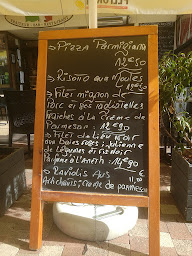 → Pizza Parmigiana
12€50
→ Risotto aux Moules
12€50
→ Filet mignon de
Porc et ses tagliatelles
fraîches à la crème de
Parmesan : 12€90
→ Filet de lieu noir
aux baies roses, julienne
de légumes et risotto
Parfumé à l'Aneth : 14€90
→ Raviolis Aux
Artichauts, crème de parmesan
11,90